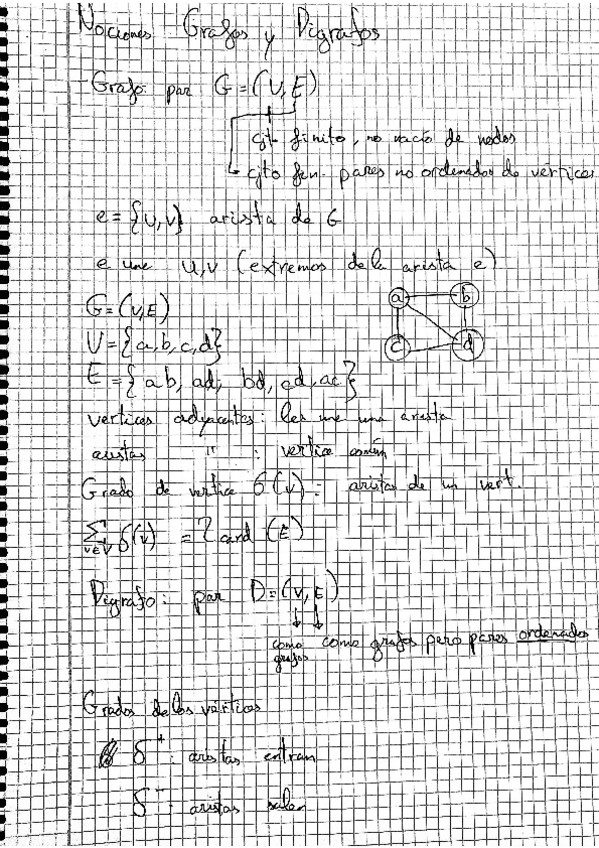 Nociones Grafos y Digrafos
Grafo: par G=(V,E)
cjt. finito, no vacío de nodos
cjto fin. pares no ordenados de vértices
e={u,v} arista de G
e une u,v (extremos de la arista e)
G=(V,E)
V={a,b,c,d}
E={ab, ad, bd, cd, ac}
a b
c d
vertices adyacentes: les une una arista
aristas " : vertice común
Grado de vertice δ(v): aristas de un vert.
∑ δ(v) = 2 card (E)
v∈V
Digrafo: par D=(V,E)
como grafos como grafos pero pares ordenados
Grados de los vértices
δ⁺: aristas entran
δ⁻: aristas salen